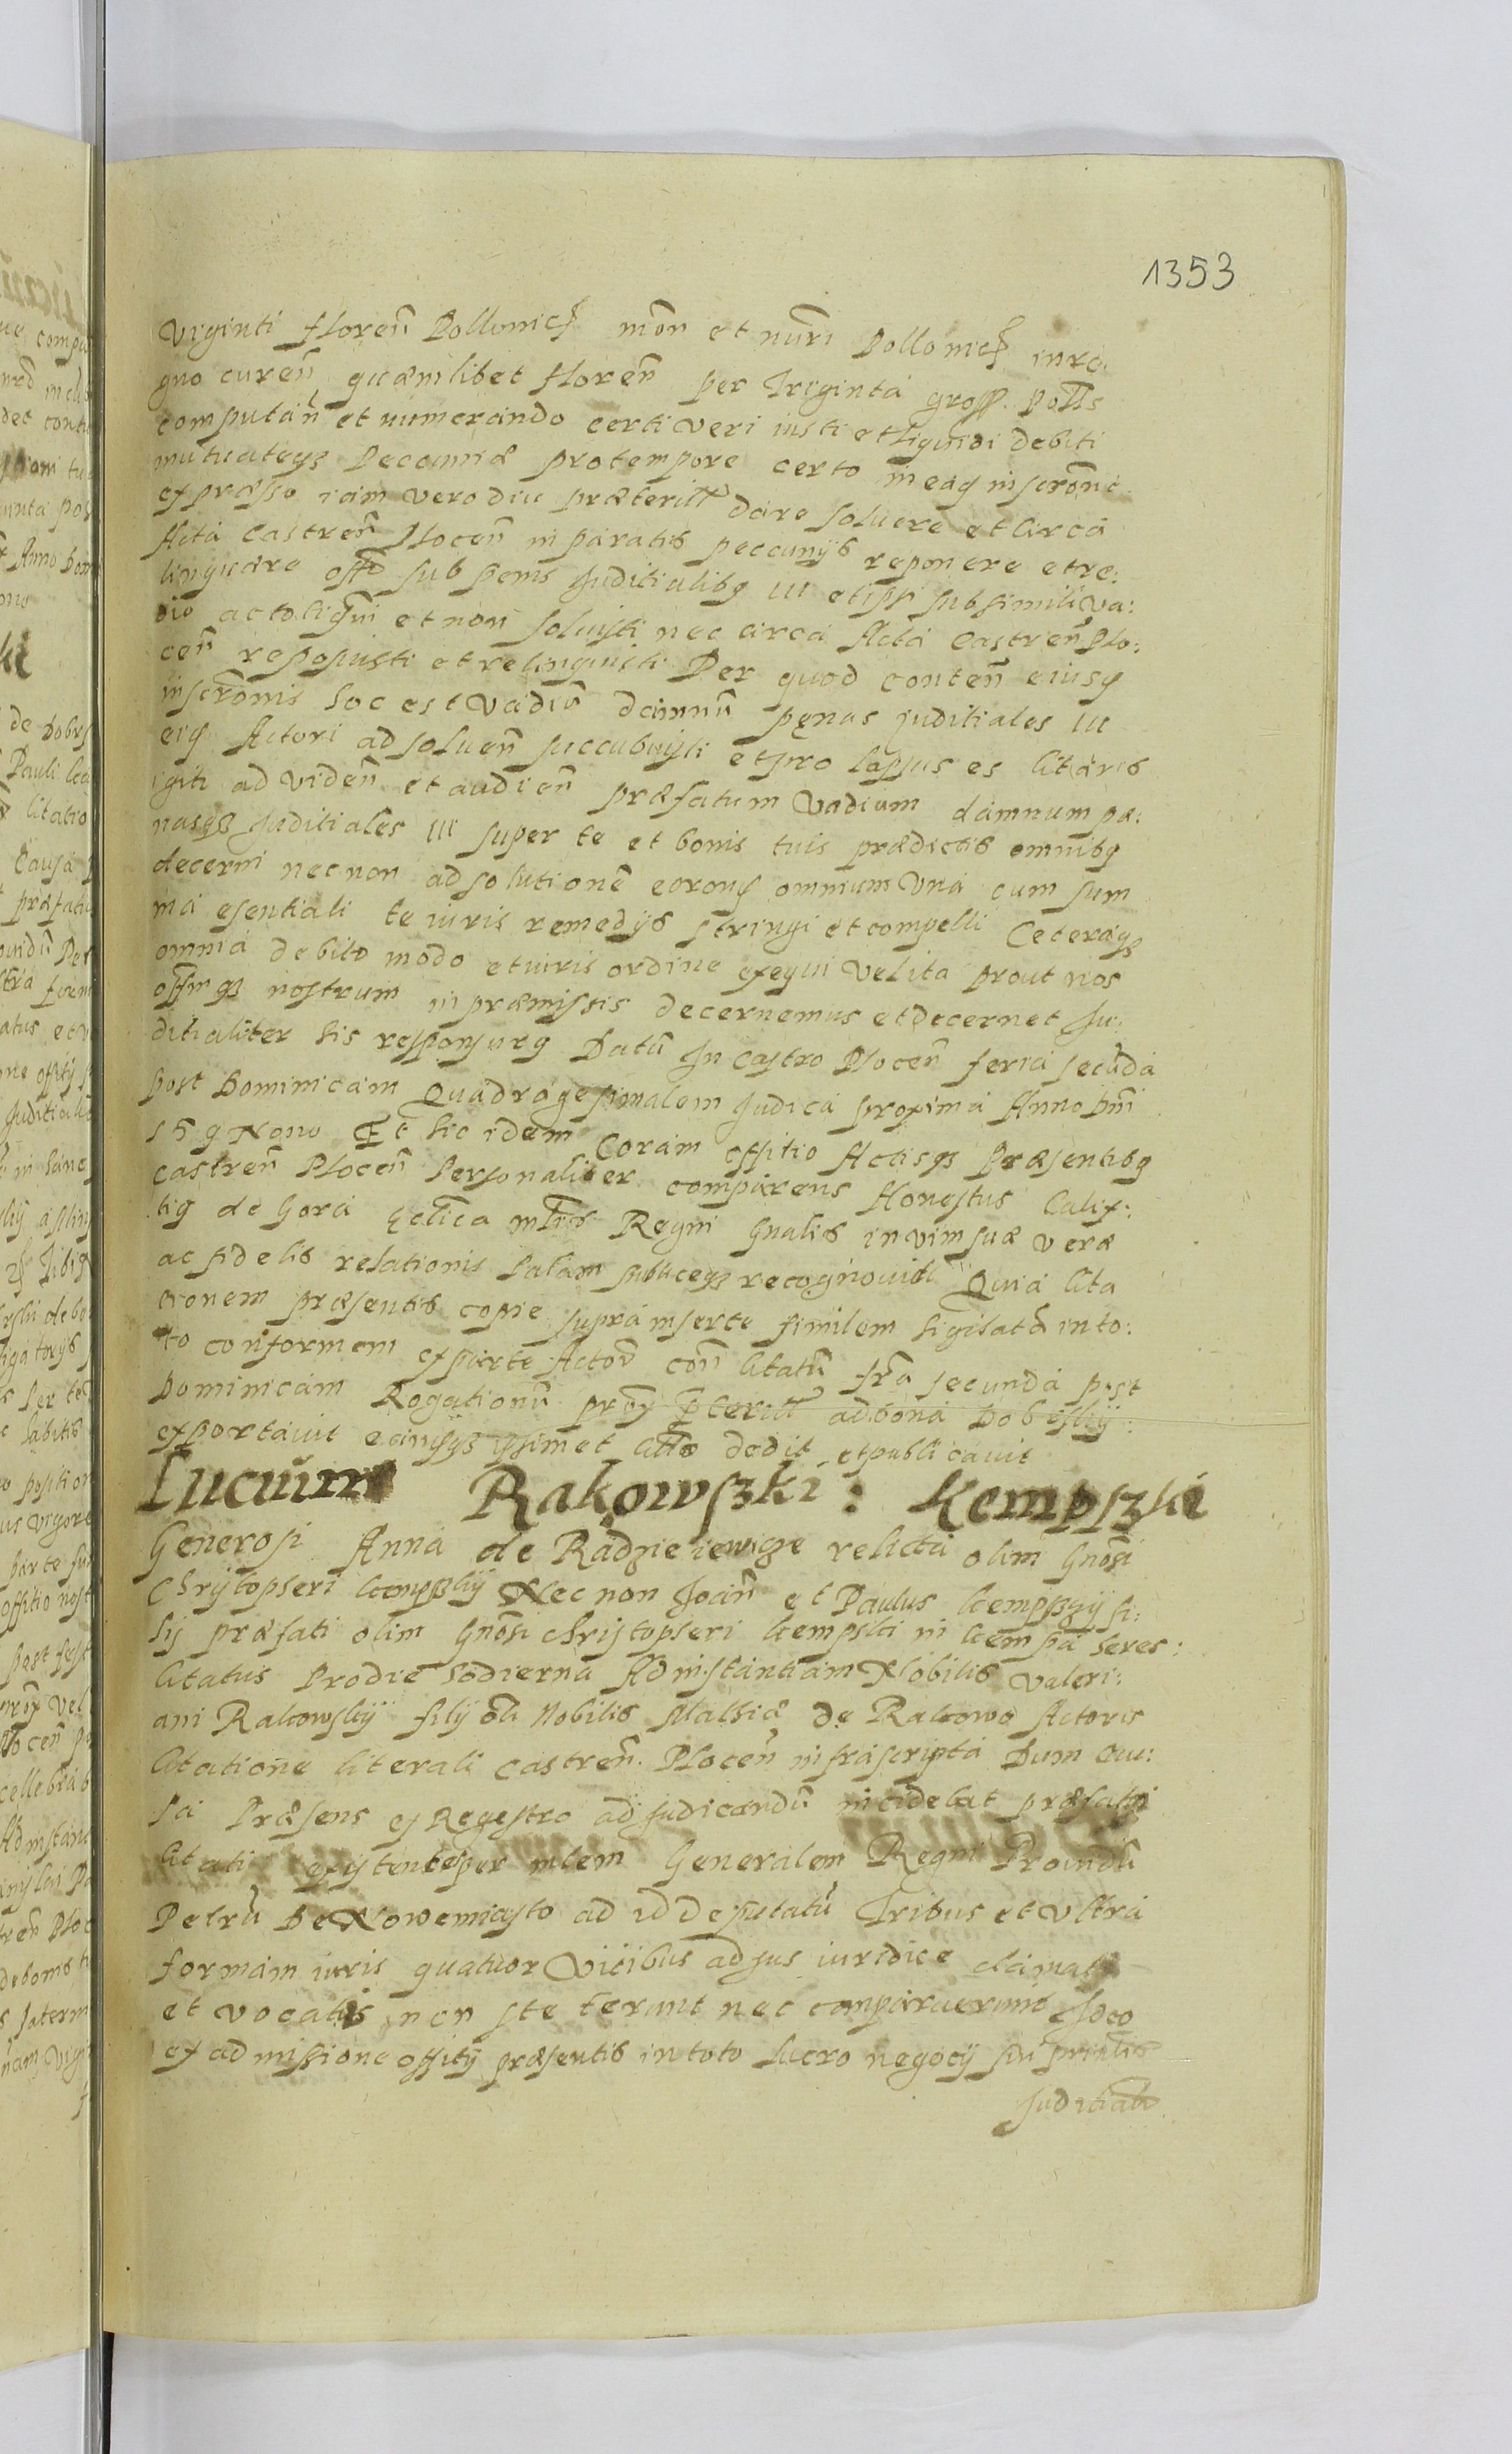 1353
Viginti floreñ Pollonicꝭ mõn et nuri Pollonicꝭ in re
gno cureñ quemlibet floreñ per Triginta gross. Pollis
computañ et numerando certi veri iusti et liquidi debiti
mutuateqʒ Pecauniæ pro tempore certo in ea inscrõne
expræsso iam vero diu præterill dare soluere et circa
Acta Castreñ Plocen in paratis peccunijs reponere et re:
linquere sub penis Juditialibq III et ipsi sub simili va:
dio actoligavi et non soluisti nec circa Acta Castreñ Plo:
ceñ reposuisti et relinquisti Per quod conteñ eiusq
inscrõnis hoc est vadiũ damnũ penas juditiales III
eiq Actori ad soluen succubuisti et pro lapsus es Citaris
igiti ad videñ et audieñ præfatum Vadium damnum pæ:
nasqʒ Juditiales III super te et bonis tuis prædictis omnibq
decerni nec non ad solutionẽ eorunq omnium vna cum sum
ma esentiali te iuris remedijs stringi et compelli Ceteraqʒ
omnia debito modo et iuris ordine exequi velita prout nos
offmqʒ nostrum in præmissis decernemus et decernet Ju:
ditialiter his responsurq Datũ In Castro Ploceñ feria secũda
post Dominicam Quadragesimalem Judica proxima Anno Dñi
Nono Et hic idem Coram offitio Actisqʒ Præsentibq
Castreñ Ploceñ Personaliter comparens Honestus Calix:
tq de Gora mlris Regni Gnalis in vim suæ veræ
ac fidelis relationis palam publiceqʒ recognouit Quia Cita
cionem præsentis copie supra inserte similem sigilatã in to:
to conformem ex parte Actoris coñ Citatũ fra secunda post
Dominicam Rogationũ prox p̃terill ad bona Dobrskij
exportauit eamqʒ ipsimet dedit et publicauit
Lucrum Rakowʃʒki: Kempʃʒki
Generosi Anna de Radzieiewicze relicta olim Gnosi
Christopheri Kempʃkij Nec non Joañ et Paulus Kempʃʒij fi:
lij præfati olim Gnosi Christopheri Kempski in Kempa heres:
Citatus Pro die hodierna Ad instantiam Nobilis Valeri:
ani Rakowskij filij oli Nobilis Mathiæ de Rakowo Actoris
Citatione literali Castreñ. Ploceñ infrascripta Dum cau:
sa Præsens ex Regestro ad judicandũ incidebat præfati
Citati existentes per mlem Generalem Regni Prouidũ
Petrũ De Nowemiasto ad id deputatũ Tribus et vltra
formam iuris quatuor Vicibus ad jus iuridice clamati
et vocatis non steterunt nec comparuerunt Ideo
ex admissione offitij præsentis in toto lucro negocij sui prntis
Juditialr